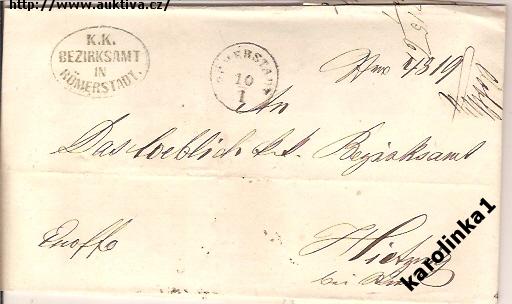 http://www.auktiva.cz/
K.K.
BEZIRKSAMT
IN
RÖMERSTADT.
RÖMERSTADT
10
1
An
Das loebliche k.k. Bezirksamt
Exoffo
karolinka1